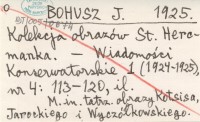 BOHUSZ J. 1925.
Kolekcja obrazów St. Hero-
manka. – Wiadomości
Konserwatorskie 1 (1924-1925),
nr 4: 113-120, il.
M. in. tatrz. obrazy Kotsisa,
Jarockiego i Wyczółkowskiego.